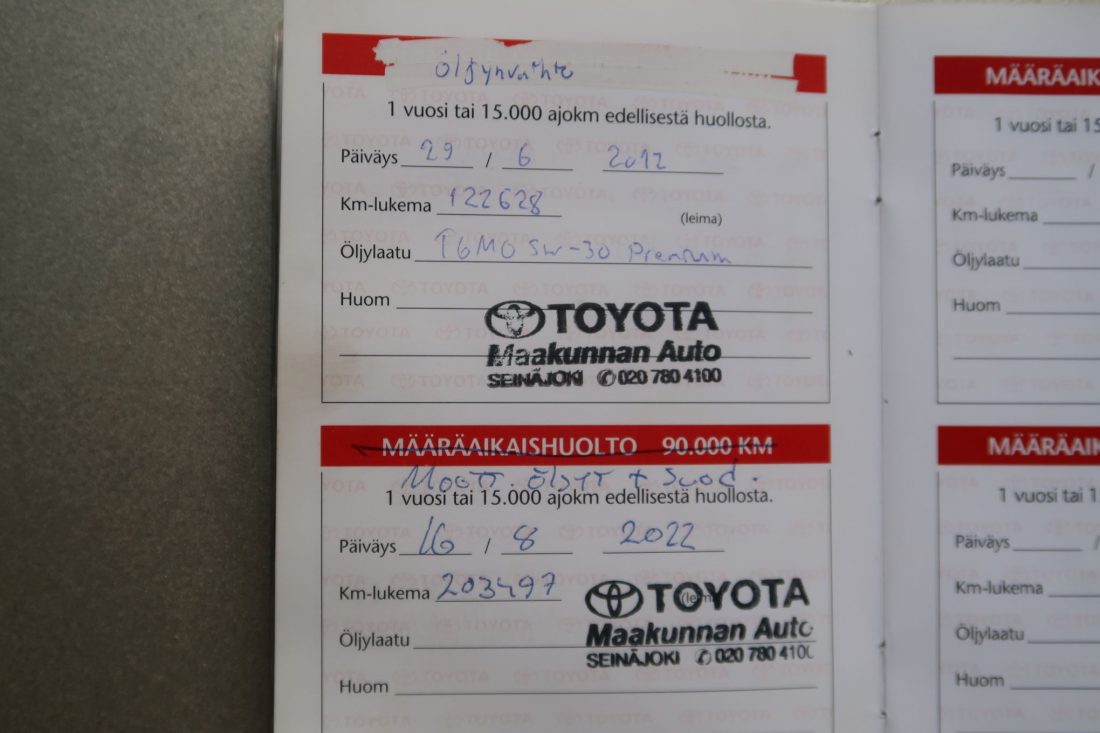 Öljynvaihto
1 vuosi tai 15.000 ajokm edellisestä huollosta.
Päiväys 29 / 6 2012
Km-lukema 122628
(leima)
Öljylaatu TGMO 5w-30 Premium
Huom
TOYOTA
Maakunnan Auto
SEINÄJOKI ✆ 020 780 4100
MÄÄRÄAIKAISHUOLTO 90.000 KM
Moott. öljyt + Suod.
1 vuosi tai 15.000 ajokm edellisestä huollosta.
Päiväys 16 / 8 2022
Km-lukema 203497
(leim
TOYOTA
Maakunnan Auto
Öljylaatu
SEINÄJOKI ✆ 020 780 410
Huom
MÄÄRÄAIK
1 vuosi tai 15
Päiväys /
Km-lukema
Öljylaatu
Huom
MÄÄRÄAIK
1 vuosi tai 1
Päiväys /
Km-lukema
Öljylaatu
Huom